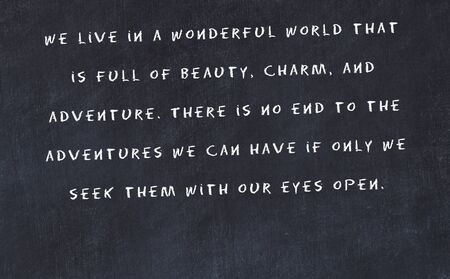 WE LIVE IN A WONDERFUL WORLD THAT
IS FULL OF BEAUTY, CHARM, AND
ADVENTURE. THERE IS NO END TO THE
ADVENTURES WE CAN HAVE IF ONLY WE
SEEK THEM WITH OUR EYES OPEN.